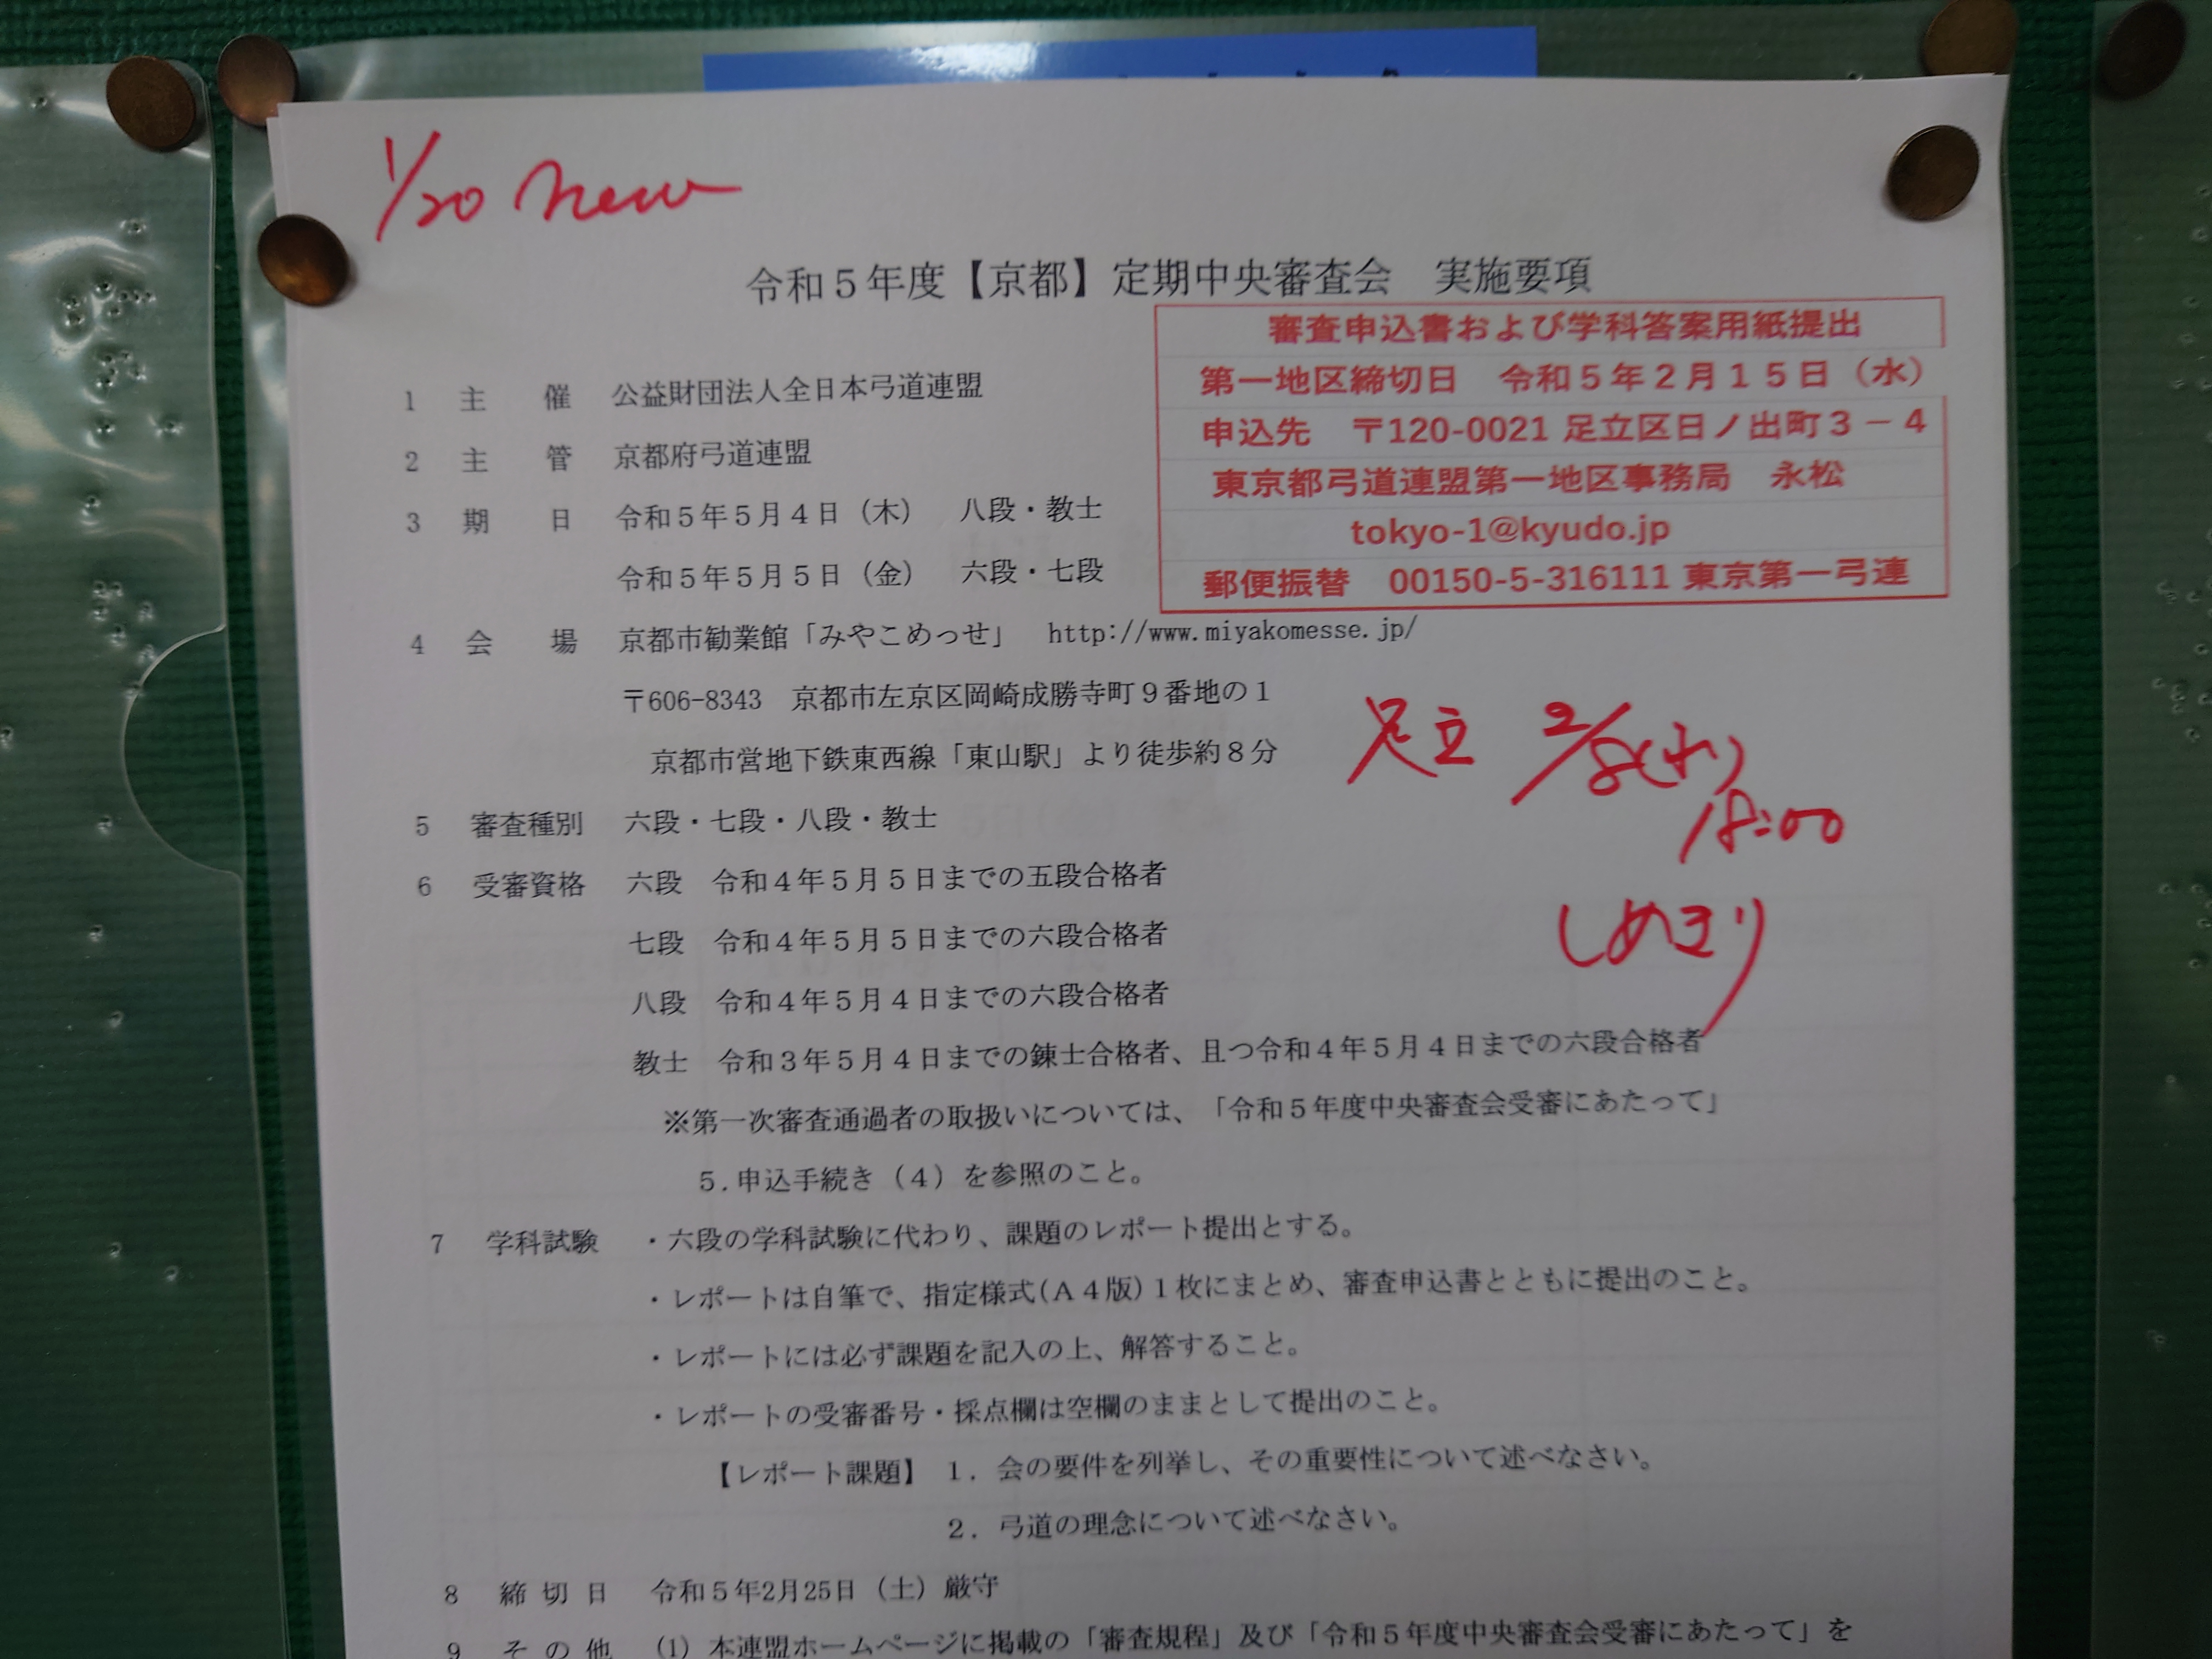 1/20 new
令和5年度【京都】定期中央審査会　実施要項
審査申込書および学科答案用紙提出
第一地区締切日　令和5年2月15日（水）
申込先　〒120-0021 足立区日ノ出町3－4
東京都弓道連盟第一地区事務局　永松
tokyo-1@kyudo.jp
郵便振替　00150-5-316111 東京第一弓連
1　主　催　公益財団法人全日本弓道連盟
2　主　管　京都府弓道連盟
3　期　日　令和5年5月4日（木）　八段・教士
令和5年5月5日（金）　六段・七段
4　会　場　京都市勧業館「みやこめっせ」　http://www.miyakomesse.jp/
〒606-8343　京都市左京区岡崎成勝寺町9番地の1
京都市営地下鉄東西線「東山駅」より徒歩約8分
足立 2/8(水)
18:00
しめきり
5　審査種別　六段・七段・八段・教士
6　受審資格　六段　令和4年5月5日までの五段合格者
七段　令和4年5月5日までの六段合格者
八段　令和4年5月4日までの六段合格者
教士　令和3年5月4日までの錬士合格者、且つ令和4年5月4日までの六段合格者
※第一次審査通過者の取扱いについては、「令和5年度中央審査会受審にあたって」
5.申込手続き（4）を参照のこと。
7　学科試験　・六段の学科試験に代わり、課題のレポート提出とする。
・レポートは自筆で、指定様式(A4版)1枚にまとめ、審査申込書とともに提出のこと。
・レポートには必ず課題を記入の上、解答すること。
・レポートの受審番号・採点欄は空欄のままとして提出のこと。
【レポート課題】　1．会の要件を列挙し、その重要性について述べなさい。
2．弓道の理念について述べなさい。
8　締切日　令和5年2月25日（土）厳守
9　その他　(1) 本連盟ホームページに掲載の「審査規程」及び「令和5年度中央審査会受審にあたって」を